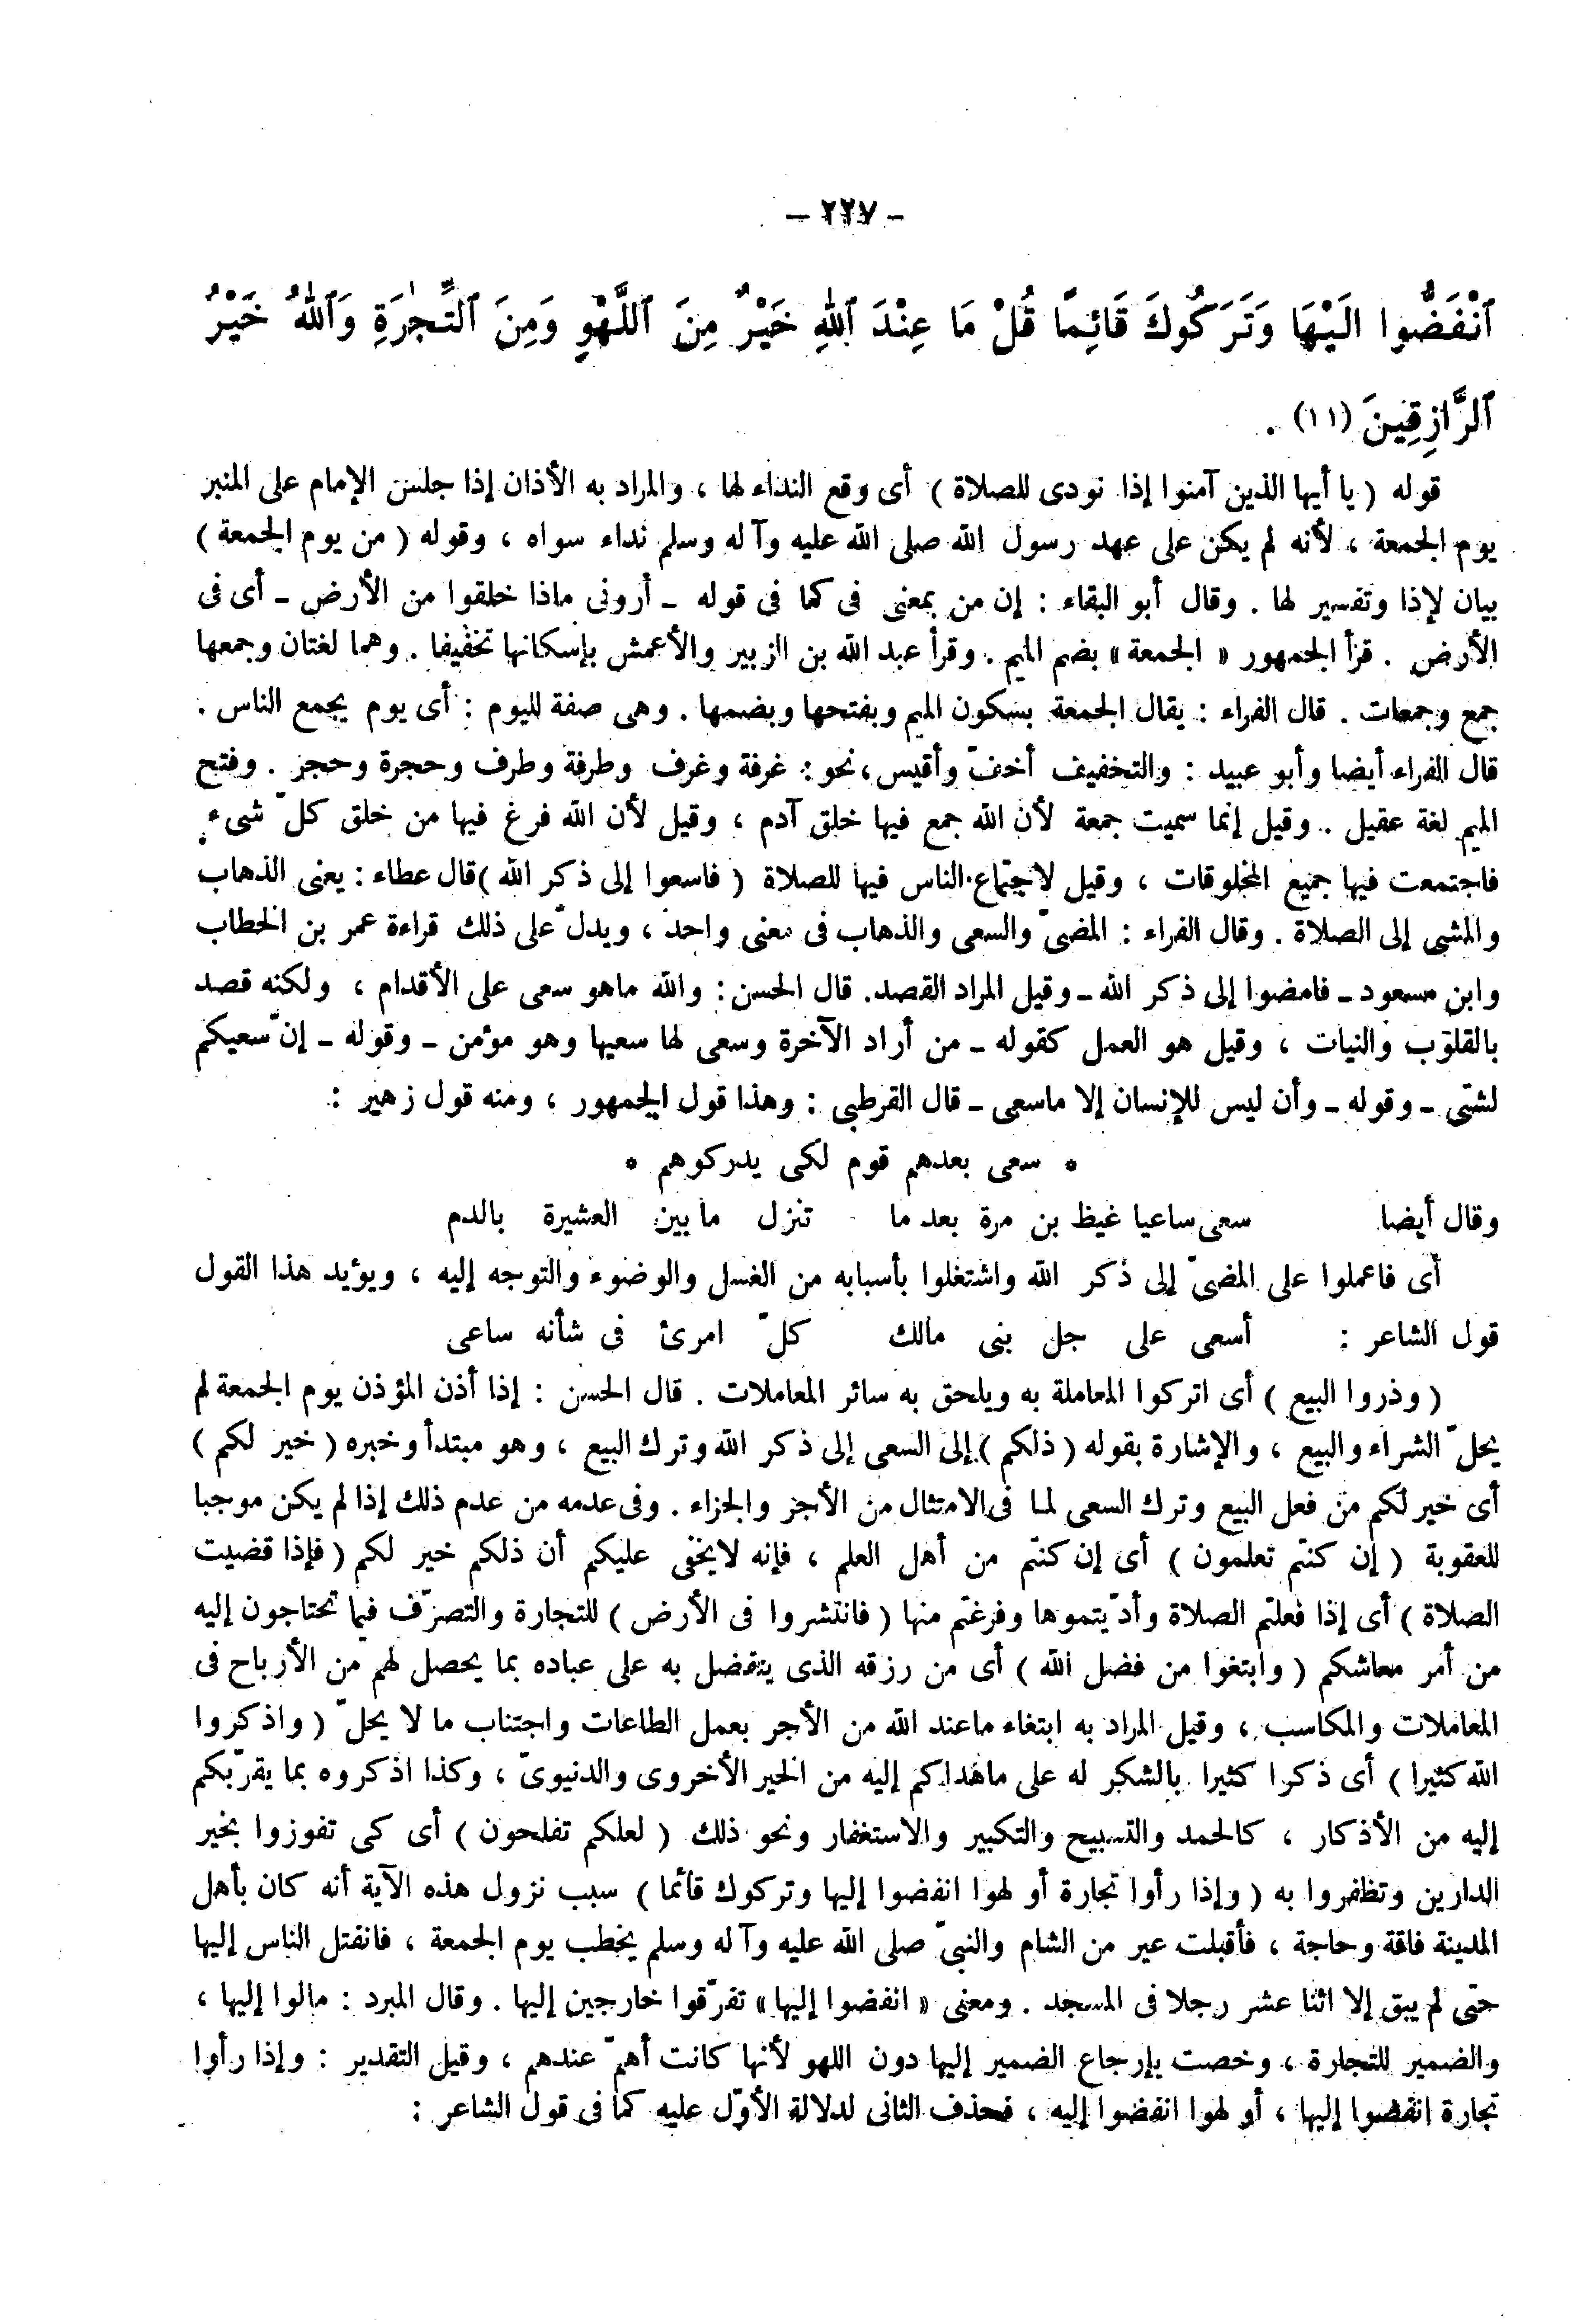 - ٢٢٧ -
ٱنْفَضُّوا الَيْهَا وَتَرَكُوكَ قَائِمًا قُلْ مَا عِنْدَ ٱللهِ خَيْرٌ مِنَ ٱللَّهْوِ وَمِنَ ٱلتِّجٰرَةِ وَٱللهُ خَيْرُ
ٱلرَّازِقِينَ (١١) .
قوله ( يا أيها الذين آمنوا إذا نودى للصلاة ) أى وقع النداء لها ، والمراد به الأذان إذا جلس الإمام على المنبر
يوم الجمعة ، لأنه لم يكن على عهد رسول الله صلى الله عليه وآله وسلم نداء سواه ، وقوله ( من يوم الجمعة )
بيان لإذا وتفسير لها . وقال أبو البقاء : إن من بمعنى فى كما فى قوله ـ أرونى ماذا خلقوا من الأرض ـ أى فى
الأرض . قرأ الجمهور « الجمعة » بضم الميم . وقرأ عبد الله بن الزبير والأعمش بإسكانها تخفيفا . وهما لغتان وجمعها
جمع وجمعات . قال الفراء : يقال الجمعة بسكون الميم وبفتحها وبضمها . وهى صفة لليوم : أى يوم يجمع الناس .
قال الفراء أيضا وأبو عبيد : والتخفيف أخفّ وأقيس ، نحو : غرفة وغرف وطرفة وطرف وحجرة وحجر . وفتح
الميم لغة عقيل . وقيل إنما سميت جمعة لأن الله جمع فيها خلق آدم ، وقيل لأن الله فرغ فيها من خلق كلّ شىء
فاجتمعت فيها جميع المخلوقات ، وقيل لاجتماع الناس فيها للصلاة ( فاسعوا إلى ذكر الله ) قال عطاء : يعنى الذهاب
والمشى إلى الصلاة . وقال الفراء : المضىّ والسعى والذهاب فى معنى واحد ، ويدلّ على ذلك قراءة عمر بن الخطاب
وابن مسعود ـ فامضوا إلى ذكر الله ـ وقيل المراد القصد. قال الحسن : والله ماهو سعى على الأقدام ، ولكنه قصد
بالقلوب والنيات ، وقيل هو العمل كقوله ـ من أراد الآخرة وسعى لها سعيها وهو مؤمن ـ وقوله ـ إنّ سعيكم
لشتى ـ وقوله ـ وأن ليس للإنسان إلا ماسعى ـ قال القرطبى : وهذا قول الجمهور ، ومنه قول زهير :
* سعى بعدهم قوم لكى يدركوهم *
وقال أيضا سعى ساعيا غيظ بن مرة بعد ما تنزل مابين العشيرة بالدم
أى فاعملوا على المضىّ إلى ذكر الله واشتغلوا بأسبابه من الغسل والوضوء والتوجه إليه ، ويؤيد هذا القول
قول الشاعر : أسعى على جل بنى مالك كلّ امرئ فى شأنه ساعى
( وذروا البيع ) أى اتركوا المعاملة به ويلحق به سائر المعاملات . قال الحسن : إذا أذن المؤذن يوم الجمعة لم
يحلّ الشراء والبيع ، والإشارة بقوله ( ذلكم ) إلى السعى إلى ذكر الله وترك البيع ، وهو مبتدأ وخبره ( خير لكم )
أى خير لكم من فعل البيع وترك السعى لما فى الامتثال من الأجر والجزاء . وفى عدمه من عدم ذلك إذا لم يكن موجبا
للعقوبة ( إن كنتم تعلمون ) أى إن كنتم من أهل العلم ، فإنه لايخفى عليكم أن ذلكم خير لكم ( فإذا قضيت
الصلاة ) أى إذا فعلتم الصلاة وأدّيتموها وفرغتم منها ( فانتشروا فى الأرض ) للتجارة والتصرّف فيما تحتاجون إليه
من أمر معاشكم ( وابتغوا من فضل الله ) أى من رزقه الذى يتفضل به على عباده بما يحصل لهم من الأرباح فى
المعاملات والمكاسب ، وقيل المراد به ابتغاء ماعند الله من الأجر بعمل الطاعات واجتناب ما لا يحلّ ( واذكروا
الله كثيرا ) أى ذكرا كثيرا بالشكر له على ماهداكم إليه من الخير الأخروى والدنيوىّ ، وكذا اذكروه بما يقرّبكم
إليه من الأذكار ، كالحمد والتسبيح والتكبير والاستغفار ونحو ذلك ( لعلكم تفلحون ) أى كى تفوزوا بخير
الدارين وتظفروا به ( وإذا رأوا تجارة أو لهوا انفضوا إليها وتركوك قائما ) سبب نزول هذه الآية أنه كان بأهل
المدينة فاقة وحاجة ، فأقبلت عير من الشام والنبىّ صلى الله عليه وآله وسلم يخطب يوم الجمعة ، فانفتل الناس إليها
حتى لم يبق إلا اثنا عشر رجلا فى المسجد . ومعنى « انفضوا إليها » تفرّقوا خارجين إليها . وقال المبرد : مالوا إليها ،
والضمير للتجارة ، وخصت بإرجاع الضمير إليها دون اللهو لأنها كانت أهمّ عندهم ، وقيل التقدير : وإذا رأوا
تجارة انفضوا إليها ، أو لهوا انفضوا إليه ، فحذف الثانى لدلالة الأوّل عليه كما فى قول الشاعر :